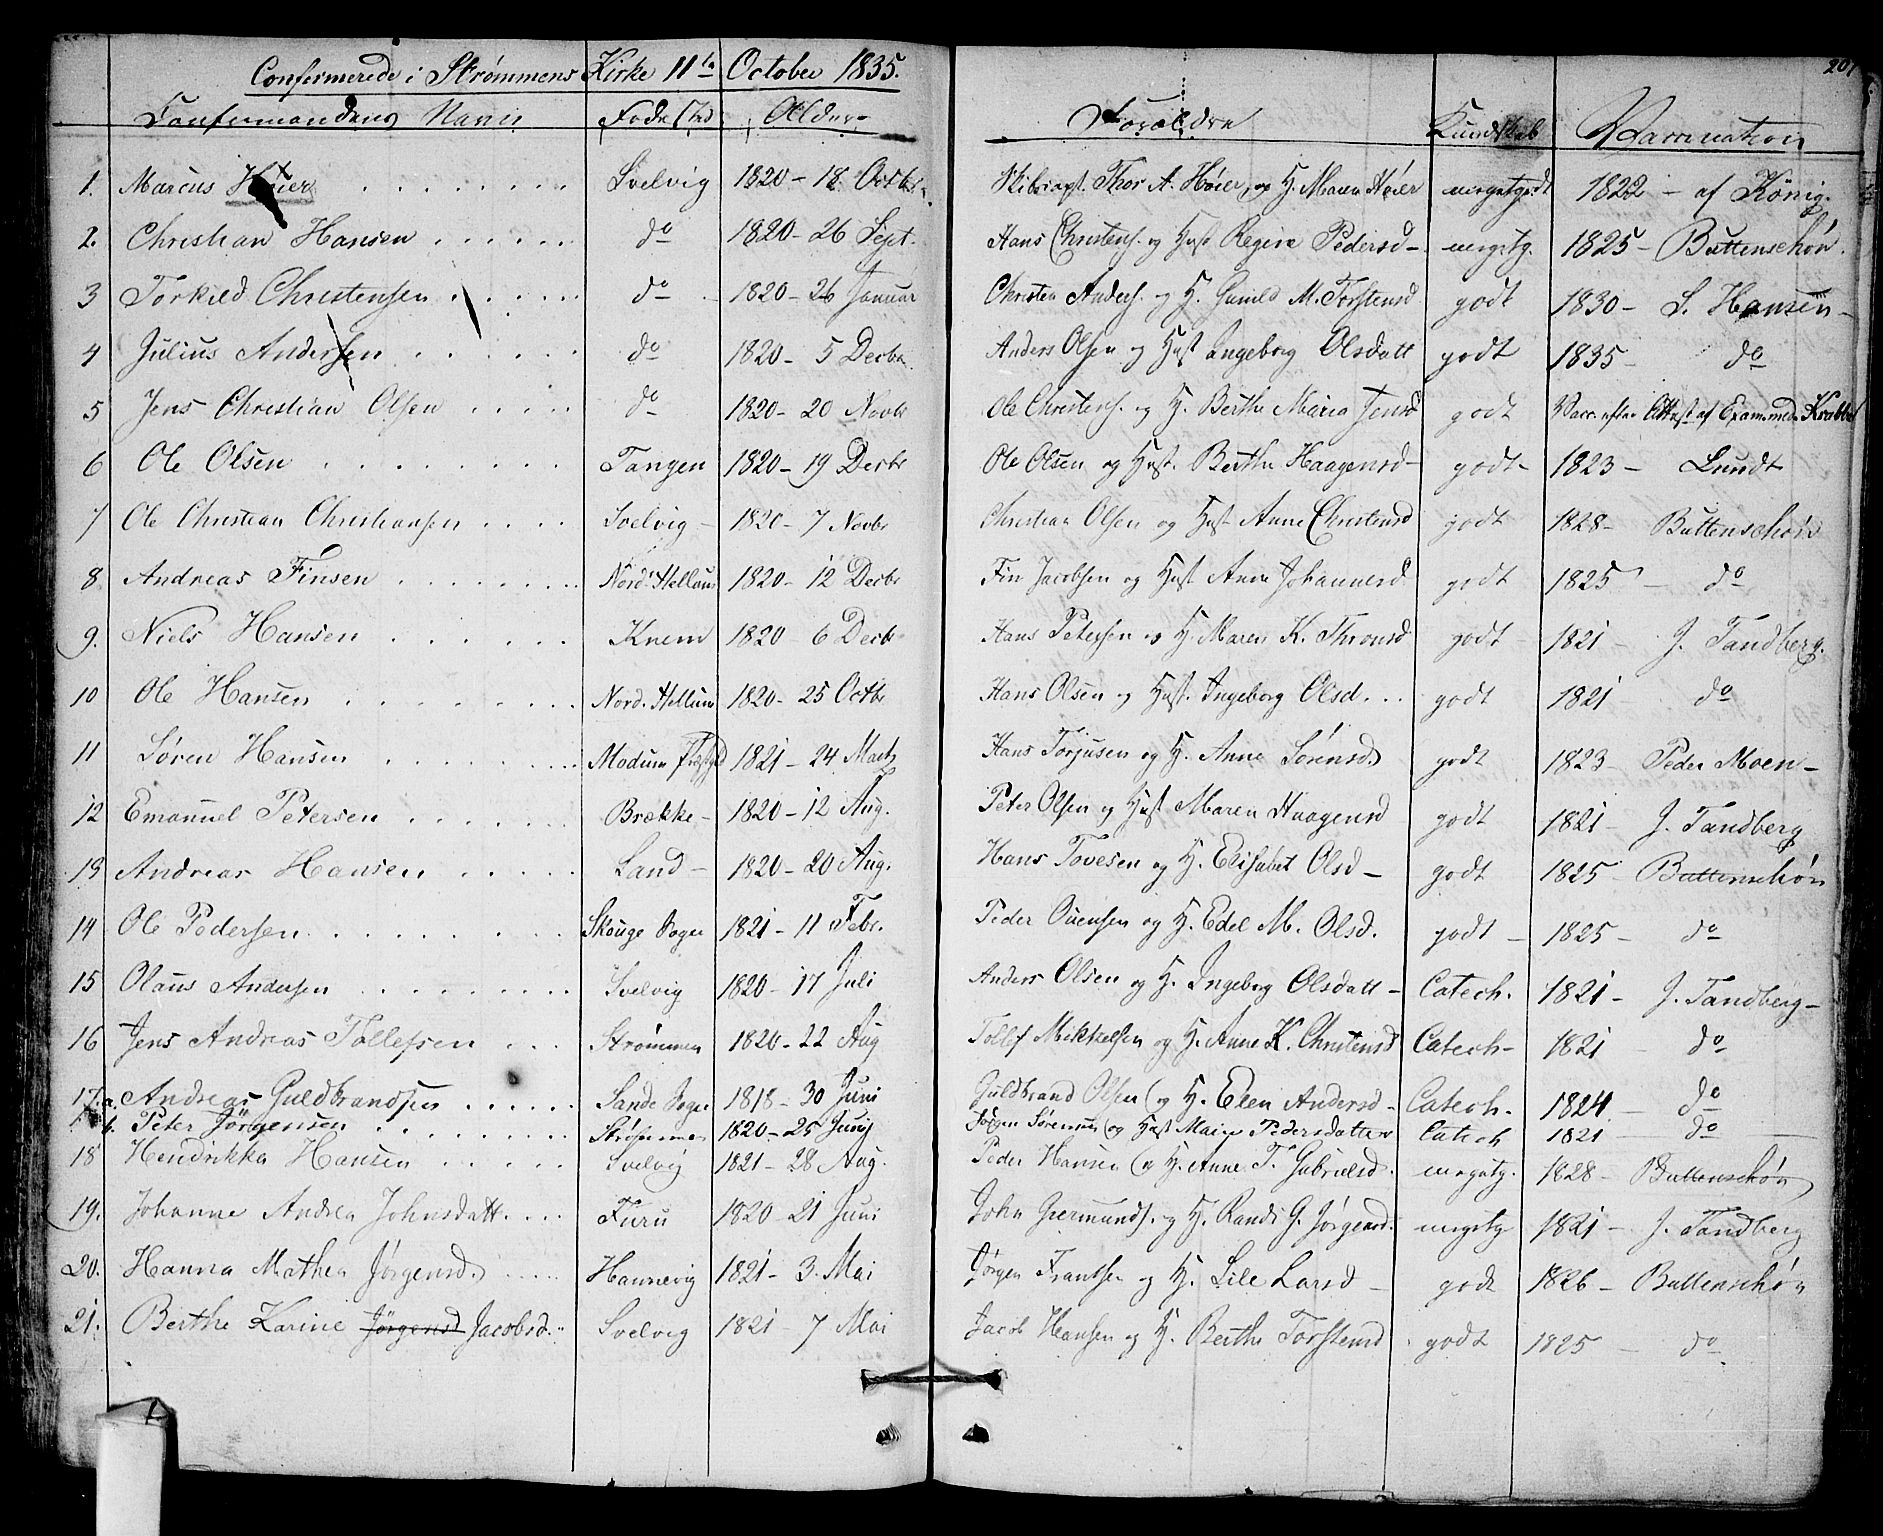 201
Confermerede i Strømmens Kirke 11te October 1835.
Confermandens Navn Fødested Alder Forældre Kundskab Vaccination
1. Marcus Høier Svelvig 1820 - 18 Octbr. Thor A. Høier, og H. Maren Høier megetgodt 1822 - af König.
2. Christian Hansen do 1820 - 26 Sept. Hans Christens. og Hust. Regine Pedersd - megetg. 1825 - Buttenschøn.
3 Torkild Christensen do 1820 - 26 Januar Christen Anders. og H. Gunild M. Torstensd godt 1830 - S. Hansen -
4 Julius Andersen do 1820 - 5 Decbr. Anders Olsen og Hust Ingeborg Olsdatt godt 1835 - do
5 Jens Christian Olsen do 1820 - 20 Novbr Ole Christens. og H. Berthe Maria Jensd godt Vacc. efter Attest af Examined. Krabbe
6 Ole Olsen Tangen 1820 - 19 Decbr Ole Olsen og Hust. Berthe Haagensd - godt - 1823 - Lundt
7 Ole Christian Christiansen Svelvig - 1820 - 7 Novbr Christian Olsen og Hust Anne Christensd godt 1828 - Buttenschøn
8 Andreas Finsen Nord. Hellum 1820 - 12 Decbr Fin Jacobsen og Hust Anne Johannesd godt 1825 - do
9. Niels Hansen Knem 1820 - 6 Decbr Hans Petersen og H. Maren K. Thronsd godt 1821 - J. Tandberg.
10 Ole Hansen Nord. Hellum 1820 - 25 Octbr Hans Olsen og Hust. Ingeborg Olsd. godt 1821 - do
11 Søren Hansen Modum 1821 - 24 Marts Hans Torjusen og H. Anne Sørensd. godt 1823 - Peder Moen -
12 Emanuel Petersen Brække - 1820 - 12 Aug. Peter Olsen og Hust Maren Haagensd godt 1821 - J. Tandberg
13 Andreas Hansen Sand - 1820 - 20 Aug. Hans Tovesen og H. Elisabet Olsd - godt 1825 - Buttenschøn
14 Ole Pedersen Skouge Sogn 1821 - 11 Febr. Peder Ovensen og H. Edel M. Olsd. godt - 1825 - do
15 Olaus Andersen Svelvig 1820 - 17 Juli Anders Olsen og H. Ingeborg Olsdatt - Catech. 1821 - J. Tandberg -
16 Jens Andreas Tollefsen Strømmen 1820 - 22 Aug Tollef Mikkelsen og H. Anne K. Christensd Catech - 1821 - do
17.a. Andreas Guldbrandsen Sande Sogn 1818 - 30 Juni Guldbrand Olsen og H. Elen Andersd - Catech. 1824 - do
b. Peter Jörgensen Strømmen 1820 - 25 Junij Jörgen Sörensen og Hust Maren Pedersdatter Catech 1821 - do -
18 Hendrikka Hansen Svelvig 1821 - 28 Aug. Peder Hansen og H. Anne T. Gabrielsd. megetg. 1828 - Buttenschøn
19. Johanne Andrea Johnsdatt. Furu 1820 - 21 Juni John Giermunds. og H. Randi G. Jørgensd. megetg 1821 - J. Tandberg
20. Hanna Mathea Jørgensd. Hannevig 1821 - 3. Mai Jørgen Frantsen og H. Sile Larsd - godt 1826 - Buttenschøn
21. Berthe Karine Jørgensd Jacobsd. Svelvig 1821 - 7 Mai Jacob Hansen og H. Berthe Torstensd godt 1825 - do